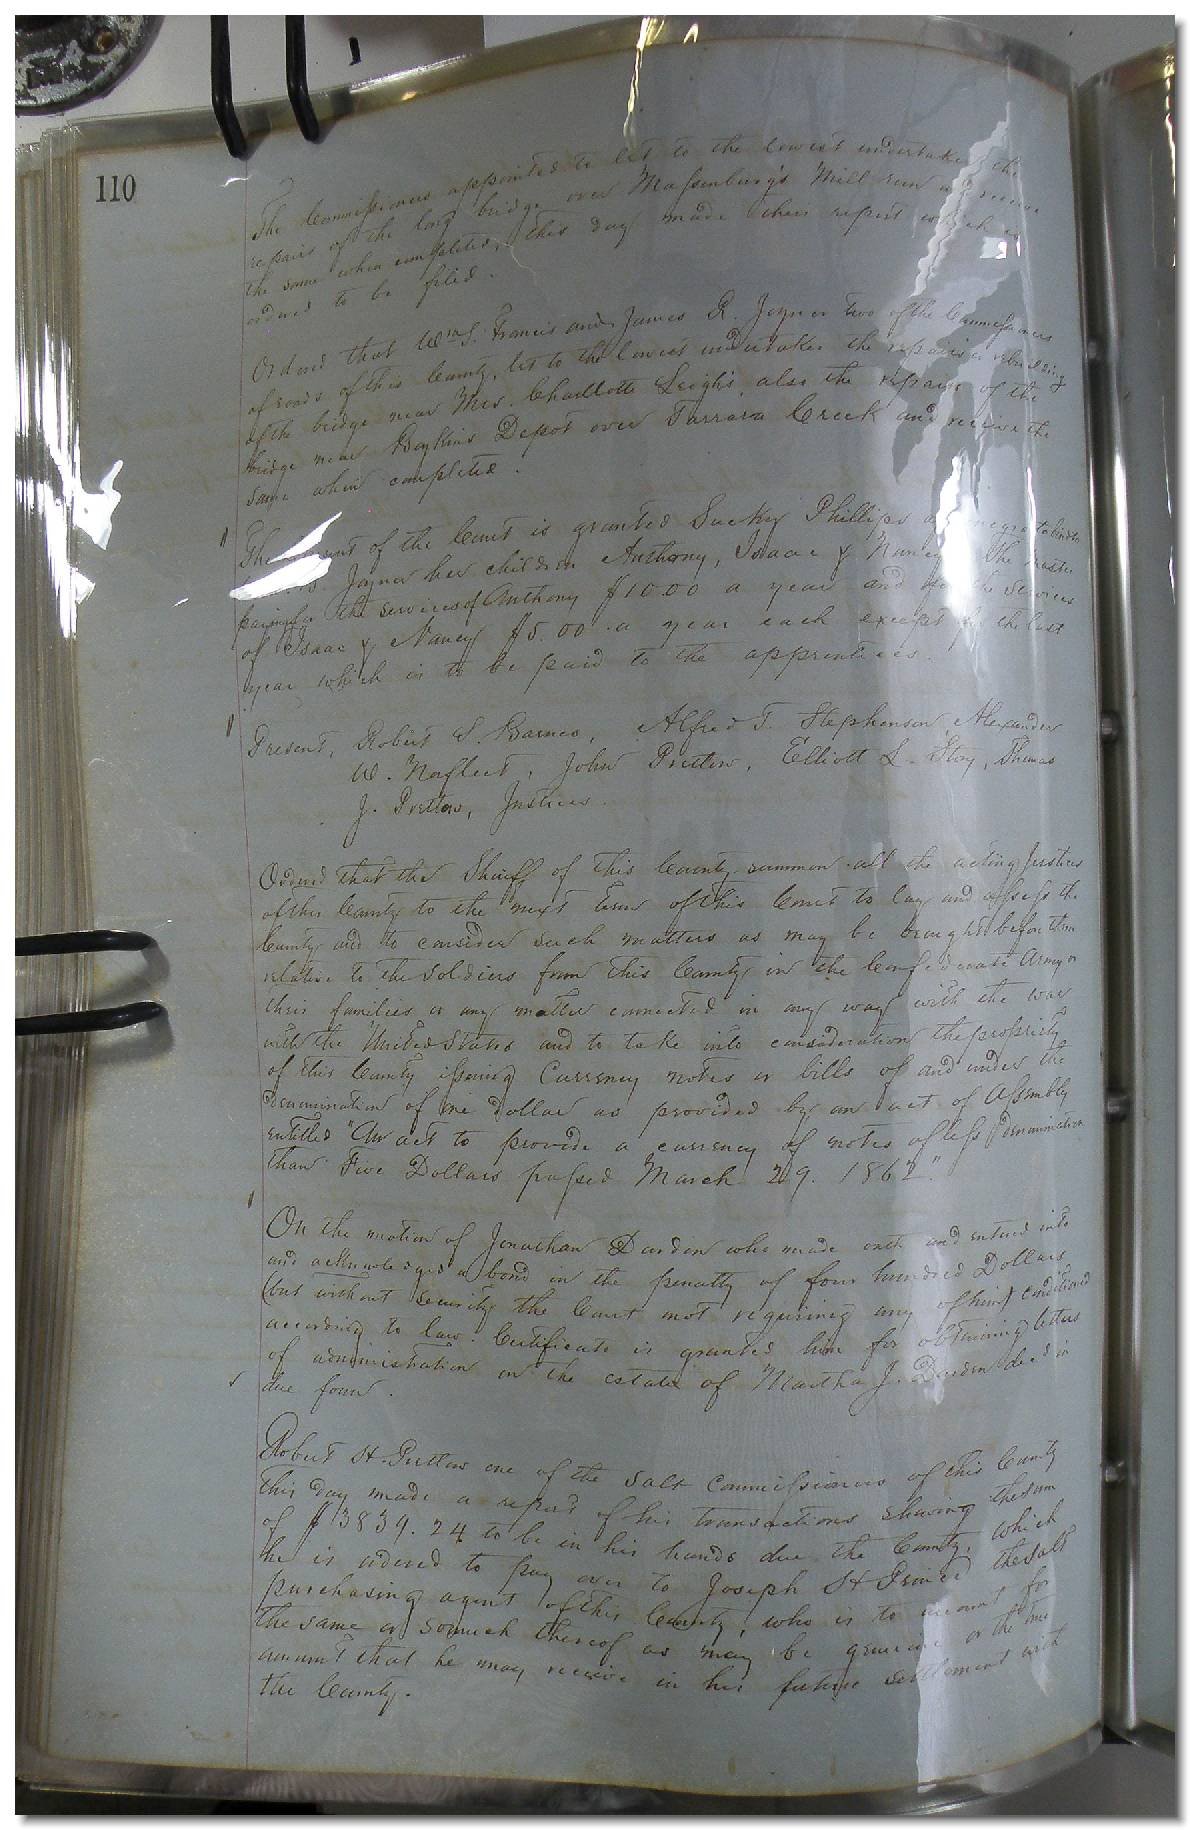 110
The Commissioners appointed to let to the lowest undertaker the
repairs of the long bridge over Massenburg's Mill run and receive
the same when completed, this day made their report which is
ordered to be filed.
Ordered that Wm S. Francis and James R. Joyner two of the Commissioners
of roads of this County, let to the lowest undertaker the repairs or rebuilding
of the bridge near Mrs. Charllotte Leigh's also the repairs of the
bridge near Boykins Depot over Tarrara Creek and receive the
same when completed.
The of the Court is granted Sucky Phillips a negro to bind to
Joyner her children Anthony, Isaac & Nancy the master
paying for the services of Anthony $10.00 a year and for the services
of Isaac & Nancy $5.00 a year each except for the last
year which is to be paid to the apprentices.
Present, Robert S. Barnes, Alfred T. Stephenson, Alexander
W. Norfleet, John Pretlow, Elliott L. Story, Thomas
J. Pretlow, Justices.
Ordered that the Sheriff of this County summon all the acting Justices
of this County to the next term of this Court to lay and assess the
County and to consider such matters as may be brought before them
relative to the soldiers from this County in the Confederate Army or
their families or any matter connected in any way with the war
with the United States and to take into consideration the propriety
of this County issuing Currency notes or bills of and under the
denomination of one dollar as provided by an act of Assembly
entitled "An act to provide a currency of notes of less denomination
than Five Dollars passed March 29. 1862."
On the motion of Jonathan Darden who made oath and entered into
and acknowledged a bond in the penalty of four hundred Dollars
(but without security the Court not requiring any of him) conditioned
according to law. Certificate is granted him for obtaining letters
of administration on the estate of Martha J. Darden dec'd in
due form.
Robert H. Pretlow one of the Salt Commissioners of this County
this day made a report of his transactions shewing the sum
of $3839.24 to be in his hands due the County, which
he is ordered to pay over to Joseph H Prince the salt
purchasing agent of this County, who is to account for
the same or so much thereof as may be genuine or the true
amount that he may receive in his future settlement with
the County.